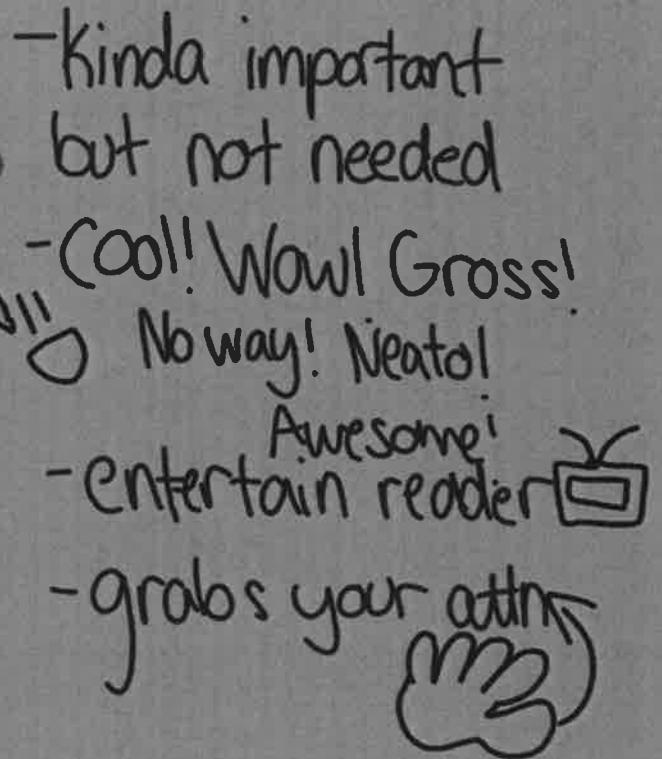 -kinda important
but not needed
-Cool! Wow! Gross!
No way! Neato!
Awesome!
-entertain reader
-grabs your attn